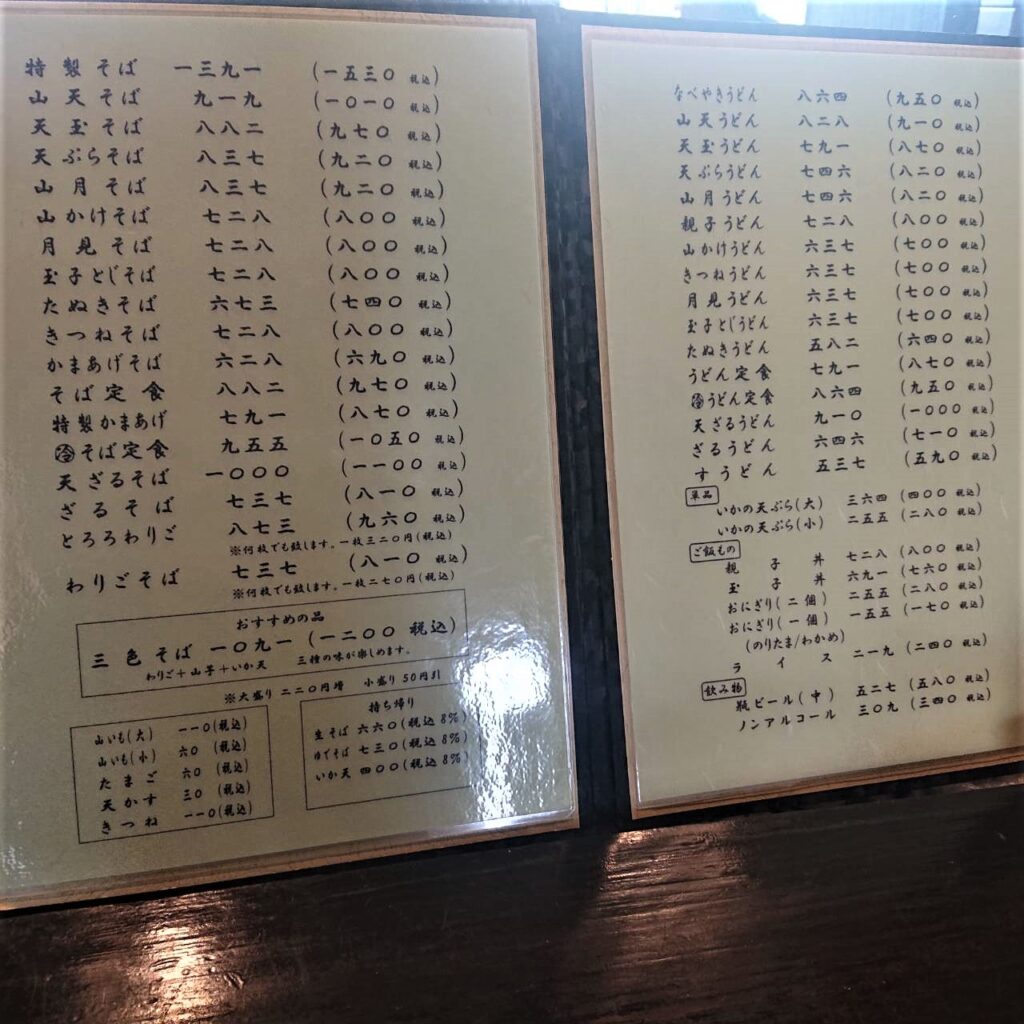 特製そば 一三九一 (一五三〇 税込)
山天そば 九一九 (一〇一〇 税込)
天玉そば 八八二 (九七〇 税込)
天ぷらそば 八三七 (九二〇 税込)
山月そば 八三七 (九二〇 税込)
山かけそば 七二八 (八〇〇 税込)
月見そば 七二八 (八〇〇 税込)
玉子とじそば 七二八 (八〇〇 税込)
たぬきそば 六七三 (七四〇 税込)
きつねそば 七二八 (八〇〇 税込)
かまあげそば 六二八 (六九〇 税込)
そば定食 八八二 (九七〇 税込)
特製かまあげ 七九一 (八七〇 税込)
㊗そば定食 九五五 (一〇五〇 税込)
天ざるそば 一〇〇〇 (一一〇〇 税込)
ざるそば 七三七 (八一〇 税込)
とろろわりご 八七三 (九六〇 税込)
※何枚でも致します。一枚三二〇円(税込)
わりごそば 七三七 (八一〇 税込)
※何枚でも致します。一枚二七〇円(税込)
おすすめの品
三色そば 一〇九一 (一二〇〇 税込)
わりご+山芋+いか天 三種の味が楽しめます。
※大盛り 二二〇円増 小盛り 50円引
山いも(大) 一一〇(税込)
山いも(小) 六〇 (税込)
たまご 六〇 (税込)
天かす 三〇 (税込)
きつね 一一〇(税込)
持ち帰り
生そば 六六〇(税込 8%)
ゆでそば 七三〇(税込 8%)
いか天 四〇〇(税込 8%)
なべやきうどん 八六四 (九五〇 税込)
山天うどん 八二八 (九一〇 税込)
天玉うどん 七九一 (八七〇 税込)
天ぷらうどん 七四六 (八二〇 税込)
山月うどん 七四六 (八二〇 税込)
親子うどん 七二八 (八〇〇 税込)
山かけうどん 六三七 (七〇〇 税込)
きつねうどん 六三七 (七〇〇 税込)
月見うどん 六三七 (七〇〇 税込)
玉子とじうどん 六三七 (七〇〇 税込)
たぬきうどん 五八二 (六四〇 税込)
うどん定食 七九一 (八七〇 税込)
㊗うどん定食 八六四 (九五〇 税込)
天ざるうどん 九一〇 (一〇〇〇 税込)
ざるうどん 六四六 (七一〇 税込)
すうどん 五三七 (五九〇 税込)
単品
いかの天ぷら(大) 三六四 (四〇〇 税込)
いかの天ぷら(小) 二五五 (二八〇 税込)
ご飯もの
親子丼 七二八 (八〇〇 税込)
玉子丼 六九一 (七六〇 税込)
おにぎり(二個) 二五五 (二八〇 税込)
おにぎり(一個) 一五五 (一七〇 税込)
(のりたま/わかめ)
ライス 二一九 (二四〇 税込)
飲み物
瓶ビール(中) 五二七 (五八〇 税込)
ノンアルコール 三〇九 (三四〇 税込)